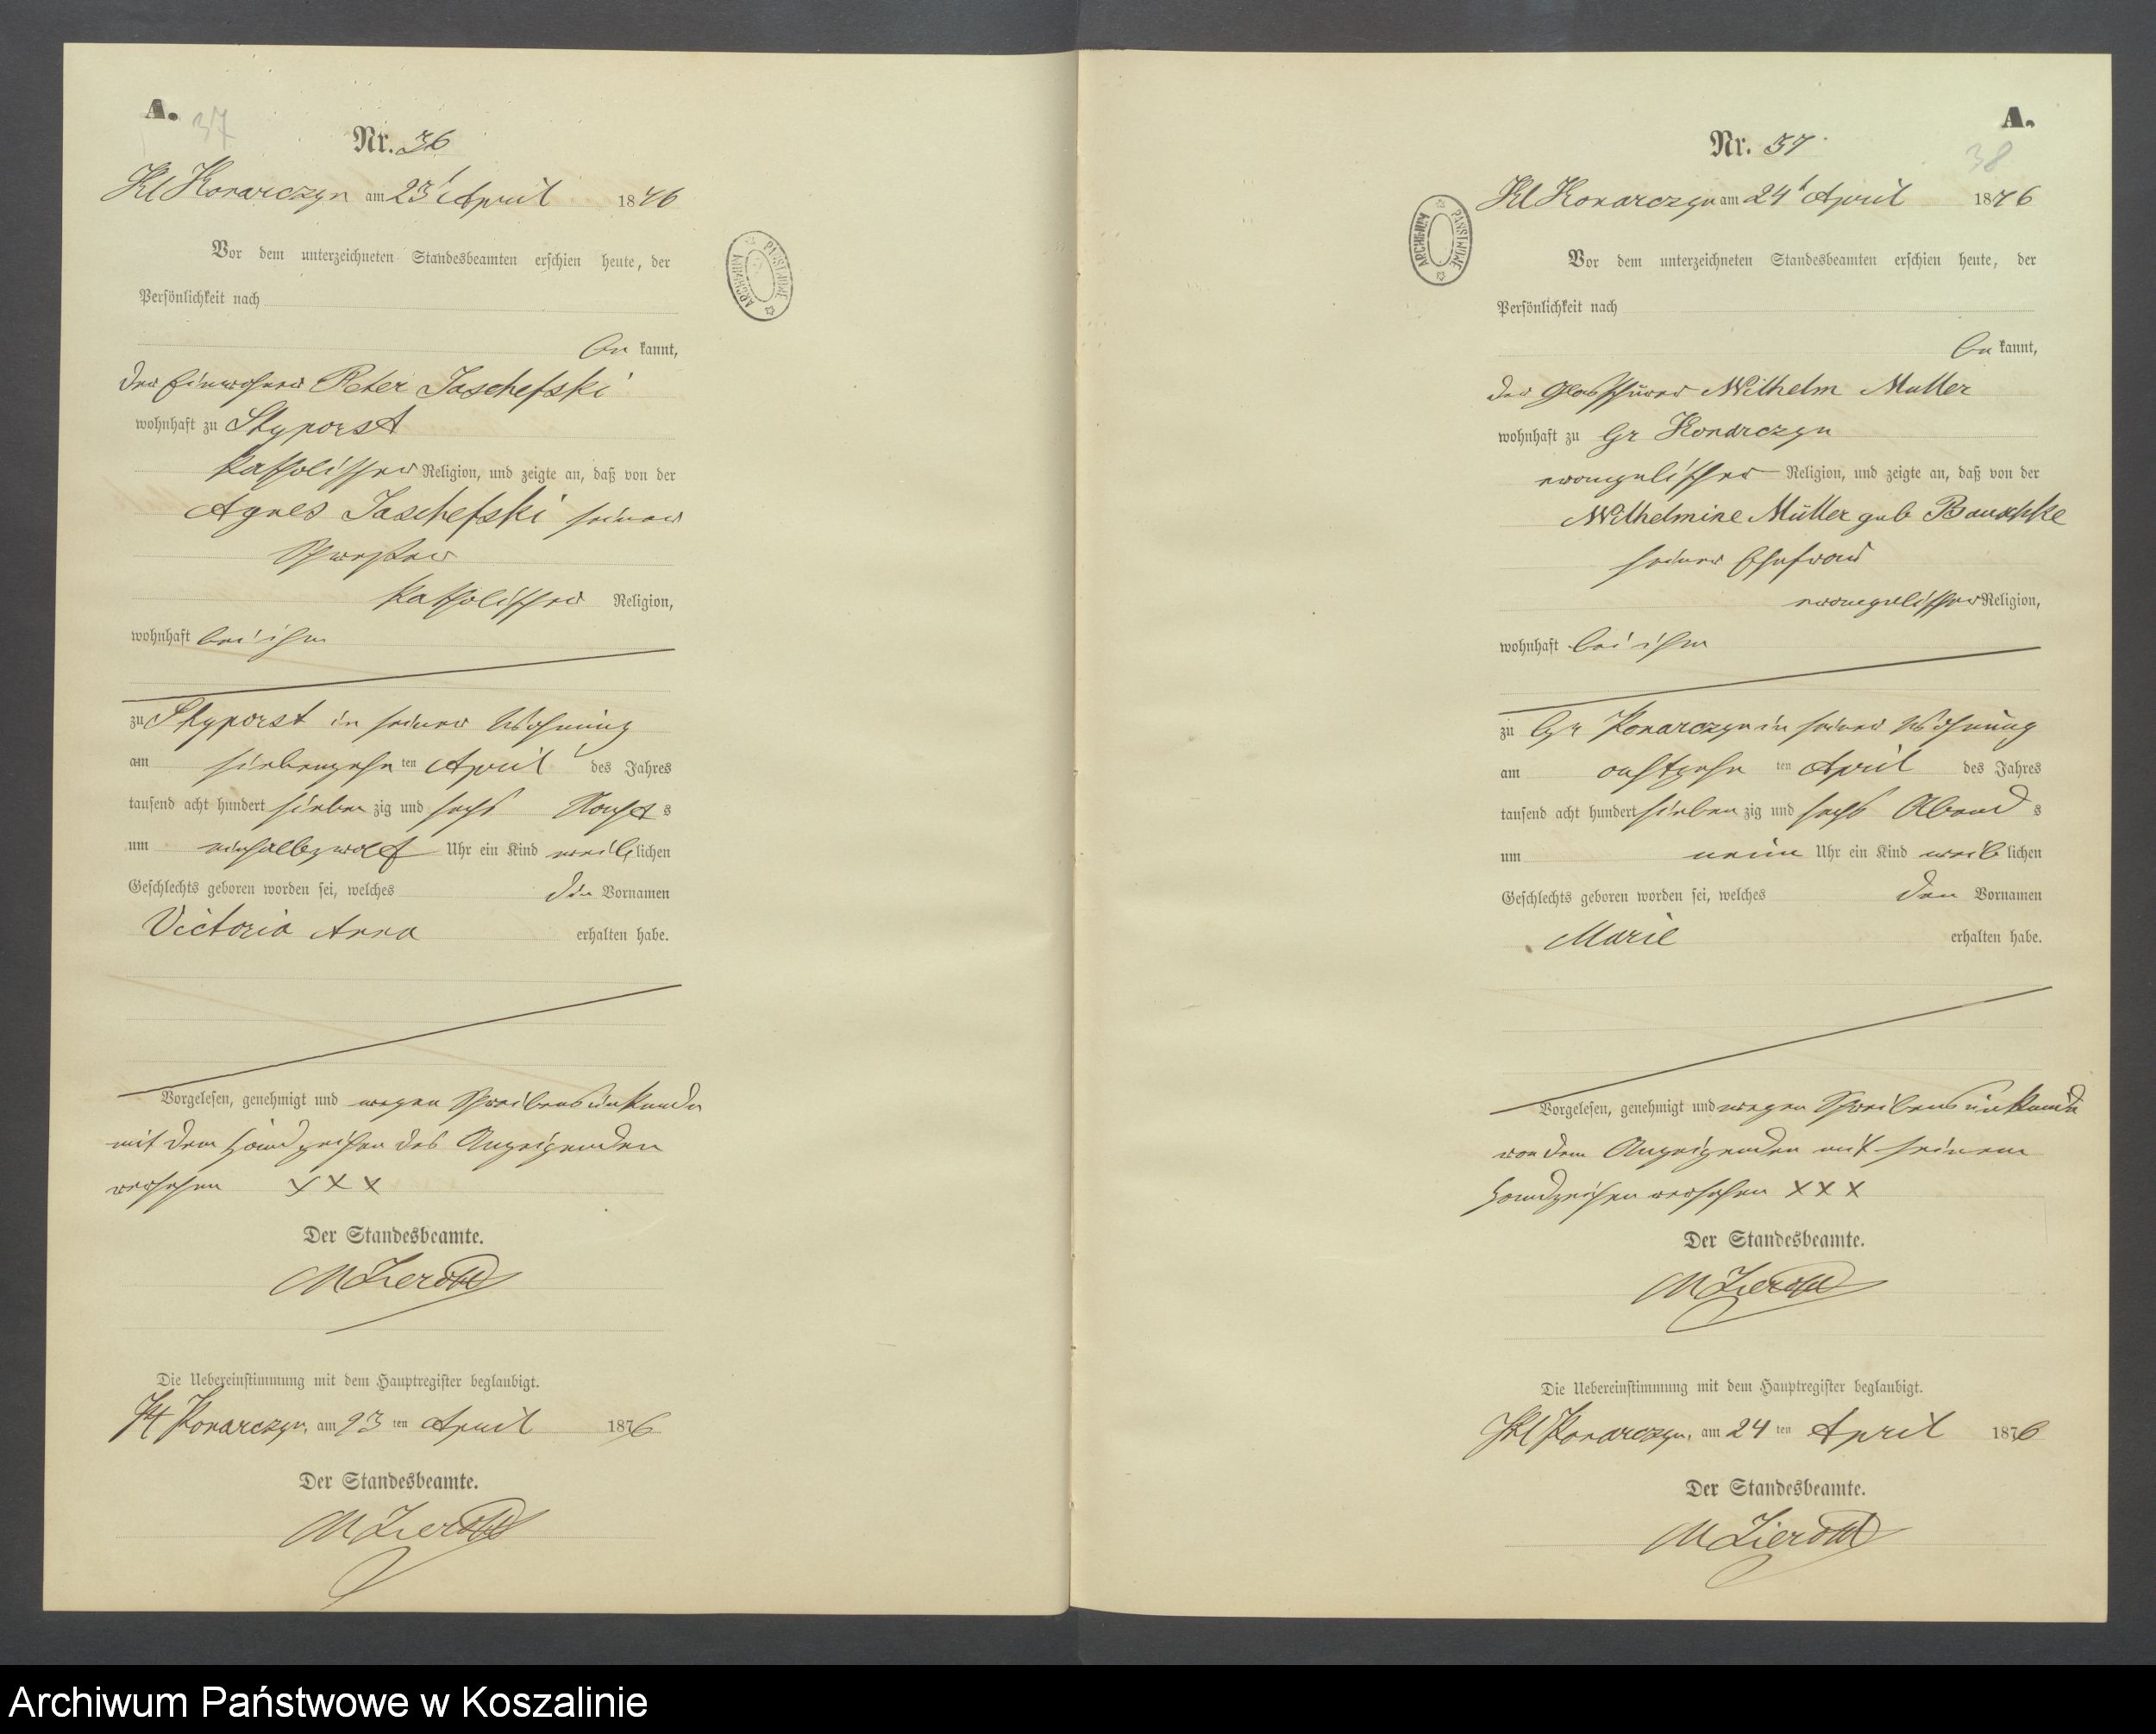 A.
37
Nr. 36
Kl Konarczyn am 23t April 1876
Vor dem unterzeichneten Standesbeamten erschien heute, der
Persönlichkeit nach
be kannt,
der Einwohner Peter Jaschefski
wohnhaft zu Styporst
katholischer Religion, und zeigte an, daß von der
Agnes Jaschefski seiner
Schwester
katholischer Religion,
wohnhaft bei ihm
zu Styporst in seiner Wohnung
am siebenzehn ten April des Jahres
tausend acht hundert sieben zig und sechs Nacht s
um einhalbzwölf Uhr ein Kind weib lichen
Geschlechts geboren worden sei, welches die Vornamen
Victoria Anna erhalten habe.
Vorgelesen, genehmigt und wegen Schreibensunkunde
mit dem Handzeichen des Anzeigenden
versehen XXX
Der Standesbeamte.
M Zierott
Die Uebereinstimmung mit dem Hauptregister beglaubigt.
Kl Konarczyn, am 23 ten April 1876
Der Standesbeamte.
M Zierott
ARCHIWUM PAŃSTWOWE
A.
38
Nr. 37
Kl Konarczyn am 24t April 1876
Vor dem unterzeichneten Standesbeamten erschien heute, der
Persönlichkeit nach
be kannt,
der Wilhelm Muller
wohnhaft zu Gr Konarczyn
evangelischer Religion, und zeigte an, daß von der
Wilhelmine Müller geb
seiner Ehefrau
evangelischer Religion,
wohnhaft bei ihm
zu Gr Konarczyn in seiner Wohnung
am achtzehn ten April des Jahres
tausend acht hundert sieben zig und sechs Abend s
um neun Uhr ein Kind weib lichen
Geschlechts geboren worden sei, welches den Vornamen
Marie erhalten habe.
Vorgelesen, genehmigt und wegen Schreibensunkunde
von dem Anzeigenden mit seinem
Handzeichen versehen XXX
Der Standesbeamte.
M Zierott
Die Uebereinstimmung mit dem Hauptregister beglaubigt.
Kl Konarczyn, am 24 ten April 1876
Der Standesbeamte.
M Zierott
ARCHIWUM PAŃSTWOWE
Archiwum Państwowe w Koszalinie